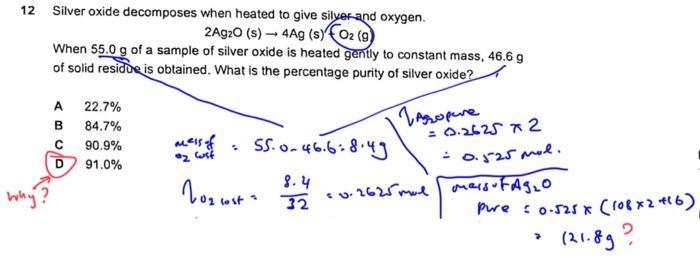 12 Silver oxide decomposes when heated to give silver and oxygen.
2Ag2O (s) → 4Ag (s) + O2 (g)
When 55.0 g of a sample of silver oxide is heated gently to constant mass, 46.6 g
of solid residue is obtained. What is the percentage purity of silver oxide?
A 22.7%
B 84.7%
C 90.9%
D 91.0%
why?
mass of O2 lost = 55.0 - 46.6 = 8.4g
n O2 lost = 8.4/32 = 0.2625 mol
n Ag2O pure
= 0.2625 x 2
= 0.525 mol.
mass of Ag2O
pure = 0.525 x (108 x 2 + 16)
= 121.8g ?